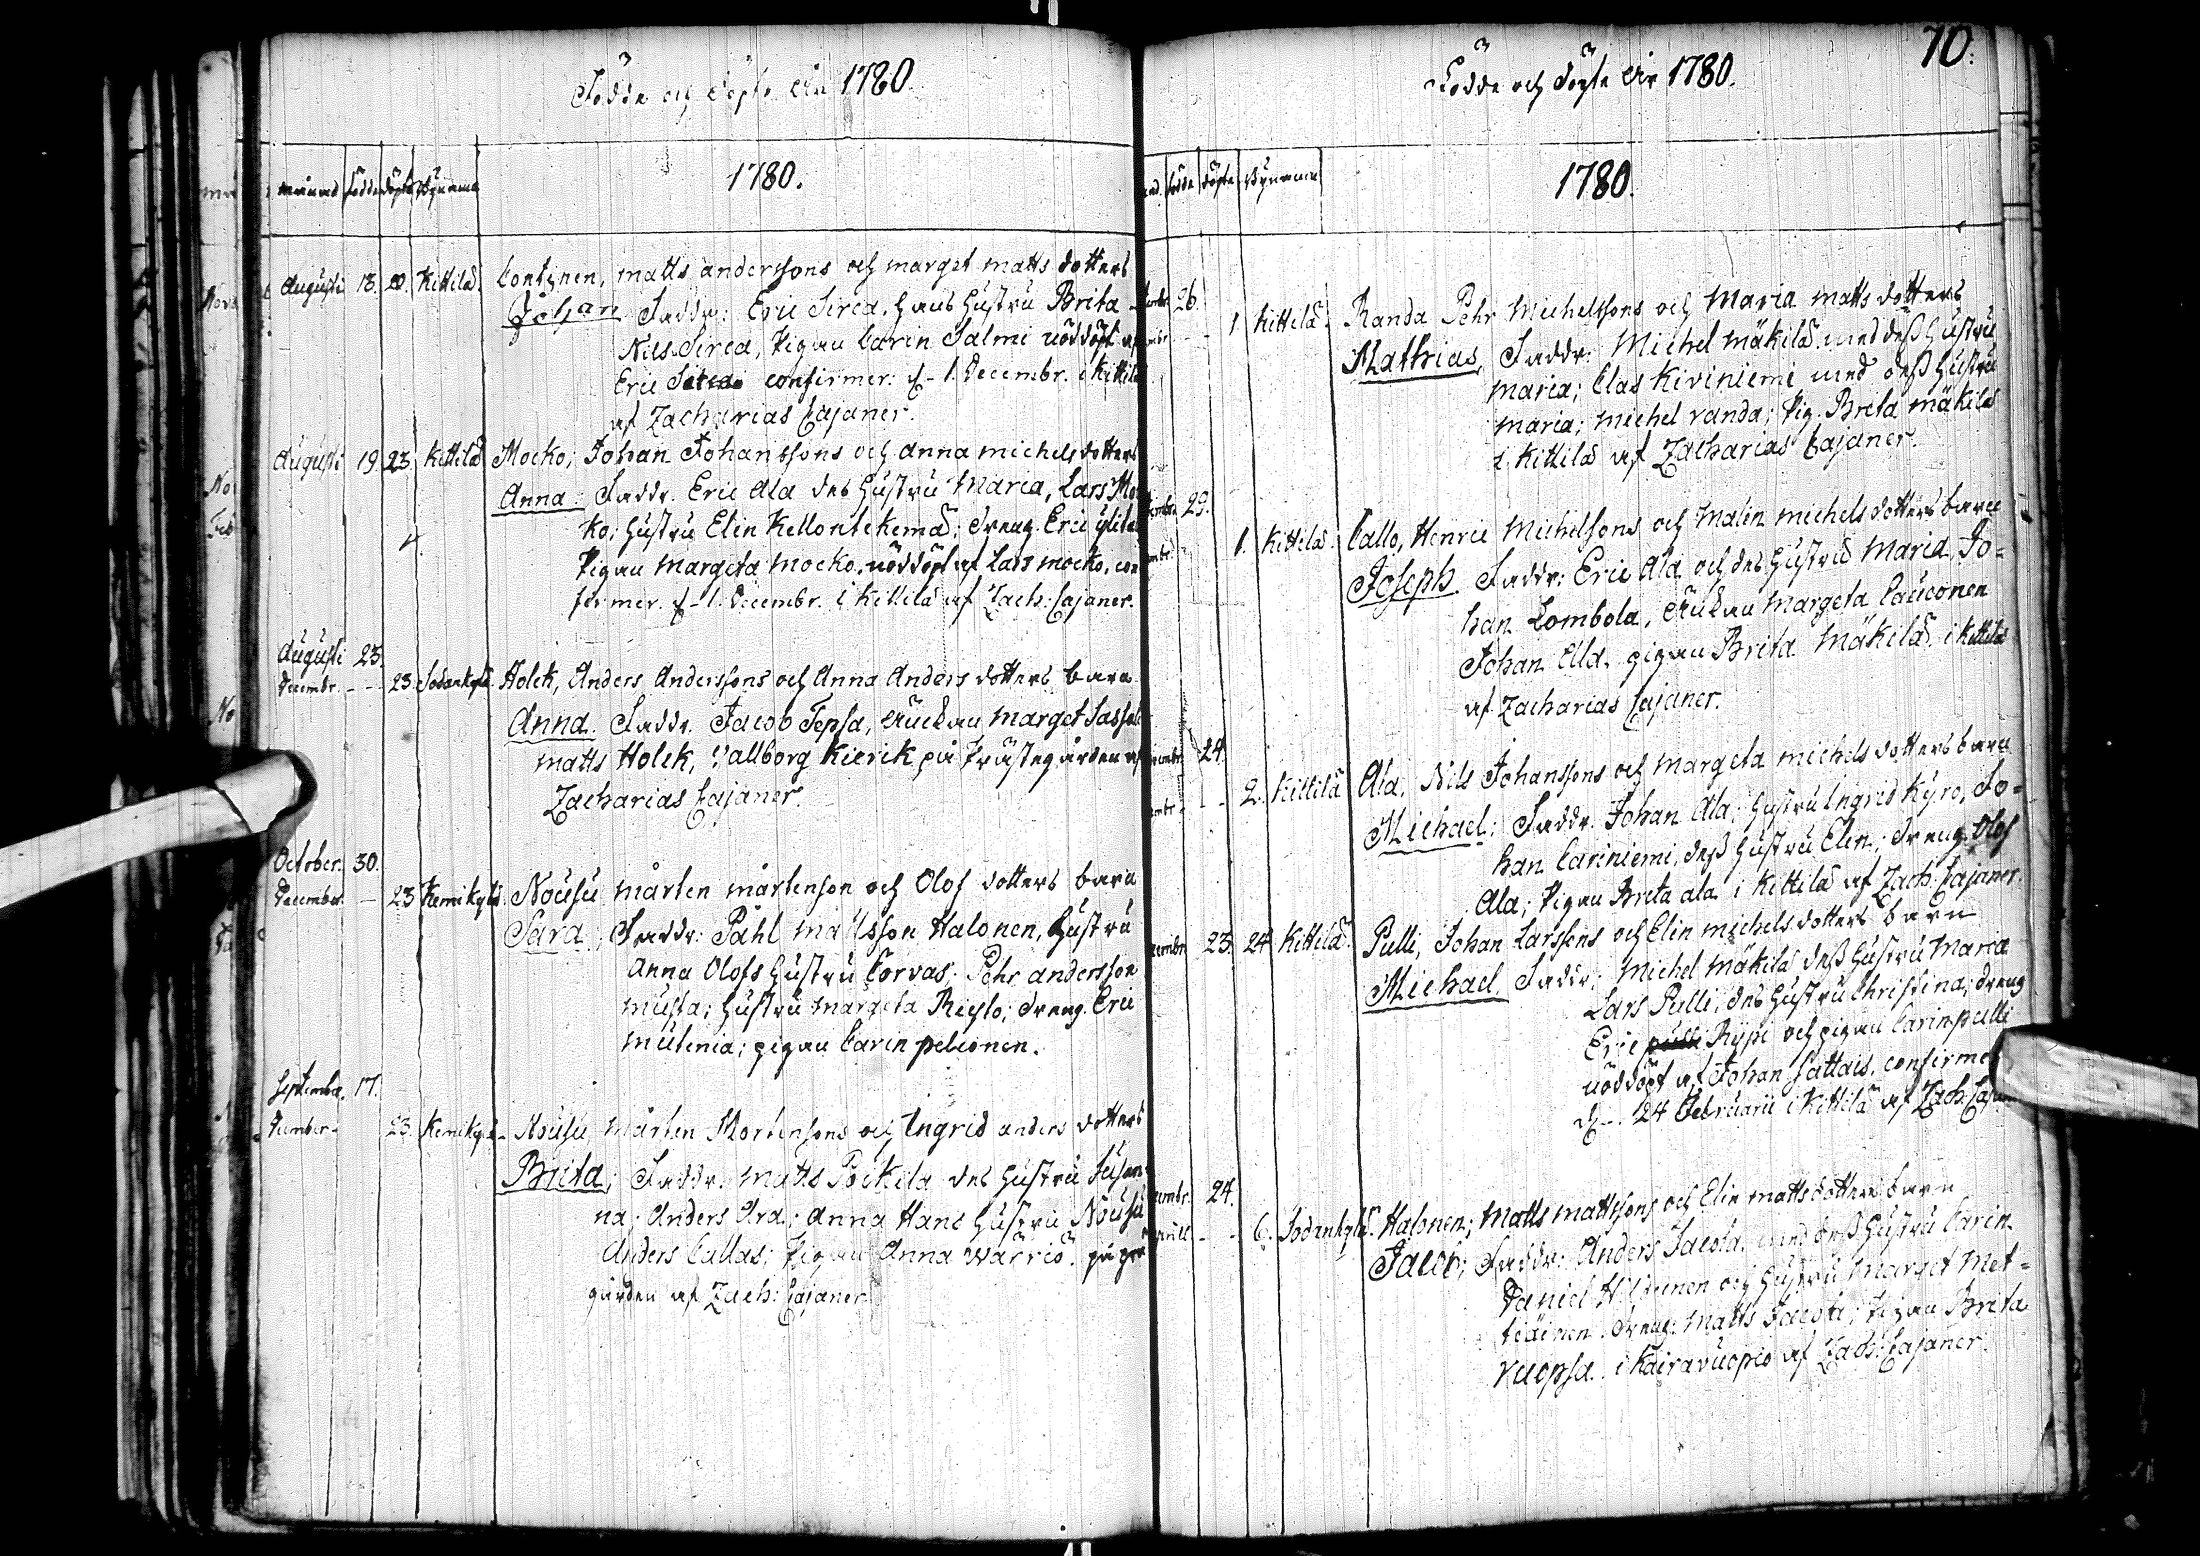 Födde och Döpte År 1780.
månad födde döpte Bynamn
1780.
Augusti 18. 20. Kittilä. Contznen, matts anderssons och marget matts dotters
Johan Faddr: Eric Sirca, hans hustru Brita
Nils Sirca, Pigan Carin Salmi nöddöpt af
Eric confirmer: d- 1. Decembr. i Kittilä
af Zacharias Cajaner.
Augusti 19. 23. Kittilä Mocko, Johan Johanssons och anna michelsdotters
Anna. Faddr. Eric Ala des hustru Maria, Lars Moc
ko; hustru Elin Kellontekemä; dreng. Eric
Pigan margeta mocko. nöddöpt af Lars mocko, con
firmer. d- 1. Decembr. i Kittilä af Zach: Cajaner.
Augusti 23.
Decembr. - - 23 Sodankylä. Holck, Anders Anderssons och Anna Anders dotters barn
Anna. Faddr. Jacob Tepsa, Änckan marget Sassal
matts Holck, Vallborg Kierik på Prästegården af
Zacharias Cajaner.
October. 30.
December. - 23 Kemikylä. Nousu mårten mårtenson och Olof dotters barn
Sara, Faddr: Påhl mattsson Halonen, hustru
Anna Olofs hustru Corvas; Pehr andersson
mussa; hustru margeta dreng. Eric
mutenia; pigan Carin pelconen.
September. 17.
December - 23. Kemikylä - Nousu, mårten Mortensons och Ingrid anders dotters
Brita; Faddr. matts Pockila des hustru Susan
na; Anders Ara; Anna Hans hustru Nousu
Anders Callas; Pigan Anna Wärriö. på pre
gården af Zach: Cajaner
70.
Födde och döpte År 1780.
födde döpte Bynamn
1780.
26.
1 Kittilä. Randa Pehr Michelssons och Maria matts dotters
Mathias, Faddr: Michel mäkilä med dess hustru
maria; Clas Kiviniemi med dess hustru
maria; michel randa; Pig. Brita mäkilä
i Kittilä af Zacharias Cajaner.
29.
1. Kittilä. Callo, Henric Michelsons och Malin michels dotters barn
Joseph. Faddr: Eric Ala och des hustru Maria Jo-
han Lombola, Änkan Margeta Cauconen
Johan Ala. pigan Brita Mäkilä. i Kittilä
af Zacharias Cajaner.
24.
- - 2. Kittilä Ala, Nils Johanssons och margeta michels dotters barn
Michael: Faddr. Johan Ala; hustru Ingrid Kyrö, Jo-
han Cariniemi, dess hustru Elin; dreng. Olof
Ala; Pigan Brita ala i Kittilä af Zach. Cajaner.
23. 24 Kittilä. Pulli, Johan Larssons och Elin michels dotters barn
Michael. Faddr; Michel mäkilä dess hustru Maria
Lars Pulli; des hustru Christina; dreng
Eric Rypi och pigan Carin pulli
nöddöpt af Johan Sattais. confirmer
d-. 24 Februarii i Kittilä af Zach: Caja
24.
- - 6. Sodankylä. Halonen; Matts mattssons och Elin matts dotters barn
Jacob; Faddr: Anders Jacola. med dess hustru Carin.
Daniel Halonen och hustru Marget Met-
teäinen. dreng: Matts Pigan Brita
Vuopsa. i Kairavuopio af Zach: Cajaner.